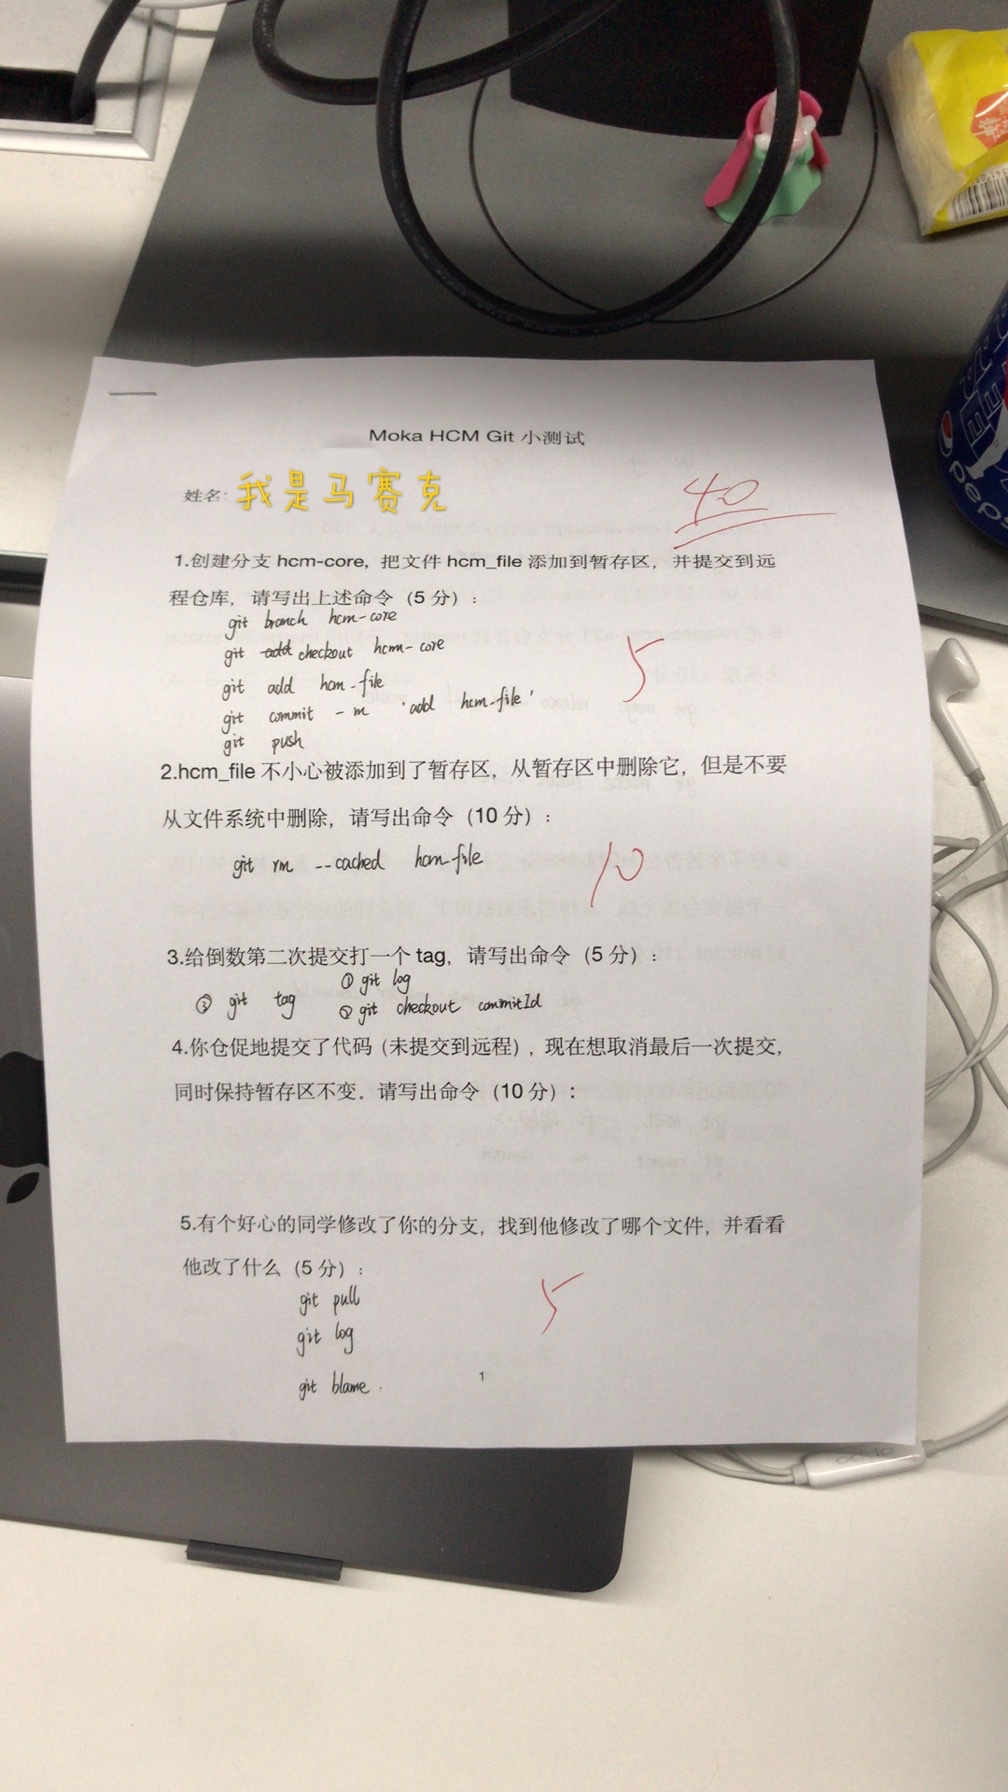 Moka HCM Git 小测试
姓名: 我是马赛克
40
1.创建分支 hcm-core，把文件 hcm_file 添加到暂存区，并提交到远
程仓库，请写出上述命令（5 分）:
git branch hcm-core
git add checkout hcm-core
git add hcm-file
git commit -m 'add hcm-file'
git push
5
2.hcm_file 不小心被添加到了暂存区，从暂存区中删除它，但是不要
从文件系统中删除，请写出命令（10 分）:
git rm --cached hcm-file
10
3.给倒数第二次提交打一个 tag，请写出命令（5 分）:
① git log
③ git tag ② git checkout commitId
4.你仓促地提交了代码（未提交到远程）, 现在想取消最后一次提交,
同时保持暂存区不变。请写出命令（10 分）:
5.有个好心的同学修改了你的分支，找到他修改了哪个文件，并看看
他改了什么（5 分）:
git pull
git log
git blame .
5
1
pepsi